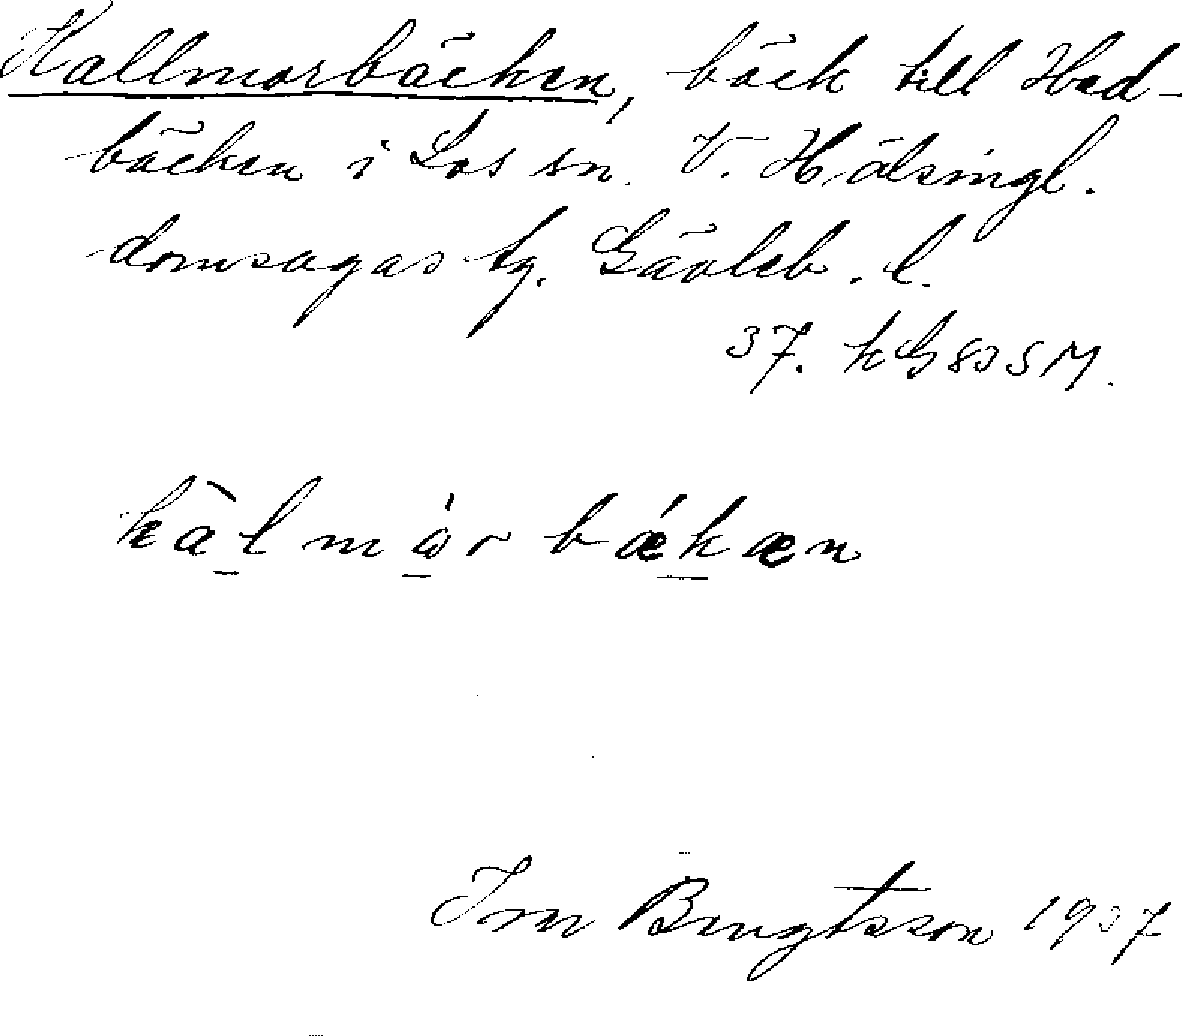 Kallmorbäcken, bäck till Hed-
bäcken i Los sn. V. Hälsingl.
domsagas tg. Gävleb. l.
37. k G 80 S M.
kàlmòr bǽkæn
Ivar Bengtsson 1937